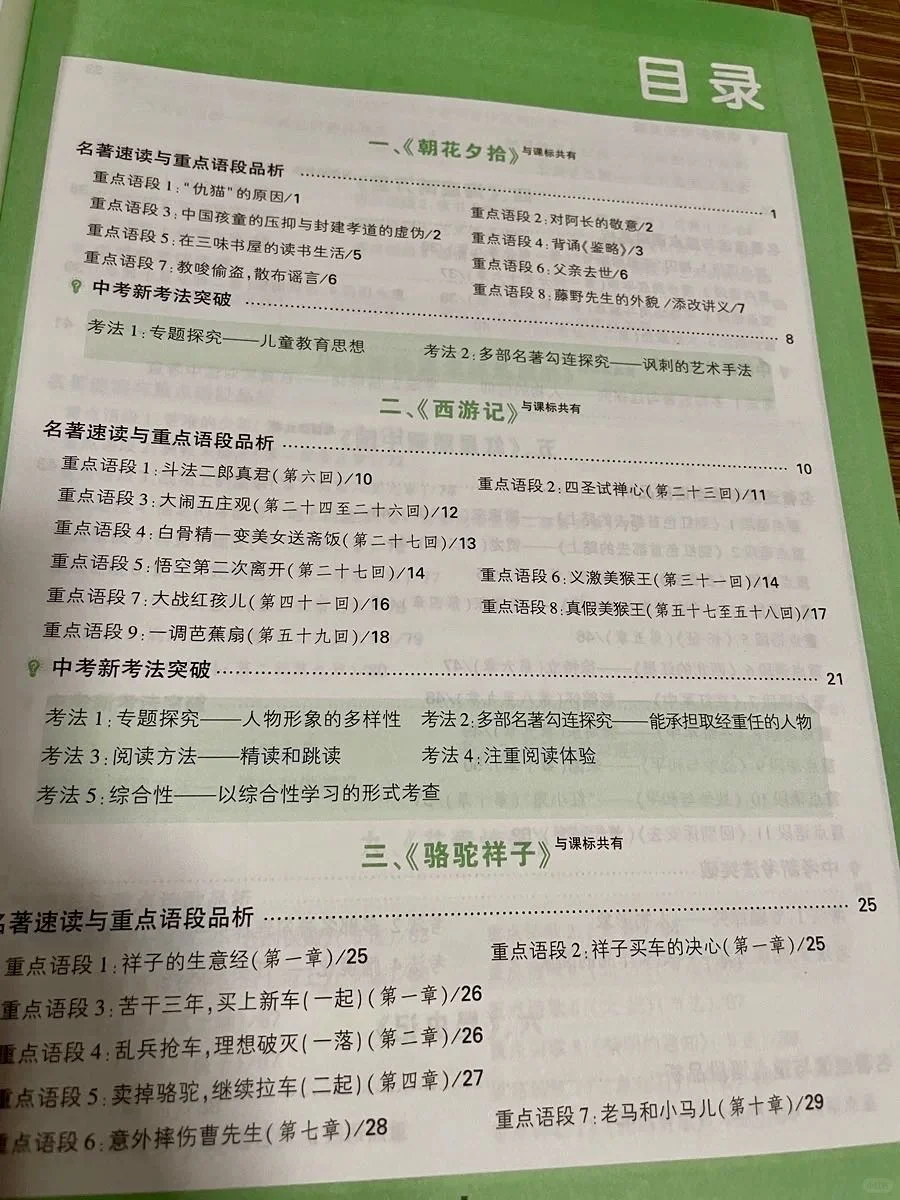 目录
一、《朝花夕拾》与课标共有
名著速读与重点语段品析 1
重点语段1:“仇猫”的原因/1
重点语段2:对阿长的敬意/2
重点语段3:中国孩童的压抑与封建孝道的虚伪/2
重点语段4:背诵《鉴略》/3
重点语段5:在三味书屋的读书生活/5
重点语段6:父亲去世/6
重点语段7:教唆偷盗,散布谣言/6
重点语段8:藤野先生的外貌/添改讲义/7
中考新考法突破 8
考法1:专题探究——儿童教育思想
考法2:多部名著勾连探究——讽刺的艺术手法
二、《西游记》与课标共有
名著速读与重点语段品析 10
重点语段1:斗法二郎真君(第六回)/10
重点语段2:四圣试禅心(第二十三回)/11
重点语段3:大闹五庄观(第二十四至二十六回)/12
重点语段4:白骨精一变美女送斋饭(第二十七回)/13
重点语段5:悟空第二次离开(第二十七回)/14
重点语段6:义激美猴王(第三十一回)/14
重点语段7:大战红孩儿(第四十一回)/16
重点语段8:真假美猴王(第五十七至五十八回)/17
重点语段9:一调芭蕉扇(第五十九回)/18
中考新考法突破 21
考法1:专题探究——人物形象的多样性
考法2:多部名著勾连探究——能承担取经重任的人物
考法3:阅读方法——精读和跳读
考法4:注重阅读体验
考法5:综合性——以综合性学习的形式考查
三、《骆驼祥子》与课标共有
名著速读与重点语段品析 25
重点语段1:祥子的生意经(第一章)/25
重点语段2:祥子买车的决心(第一章)/25
重点语段3:苦干三年,买上新车(一起)(第一章)/26
重点语段4:乱兵抢车,理想破灭(一落)(第二章)/26
重点语段5:卖掉骆驼,继续拉车(二起)(第四章)/27
重点语段6:意外摔伤曹先生(第七章)/28
重点语段7:老马和小马儿(第十章)/29